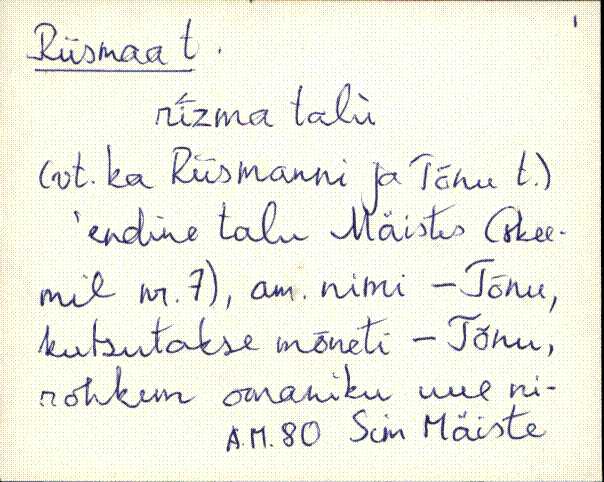 1
Riismaa t.
rīzma talù
(vt. ka Riismanni ja Tõnu t.)
'endine talu Mäistes (skee-
mil nr. 7), am. nimi – Tõnu,
kutsutakse mõneti – Tõnu,
rohkem omaniku uue ni-
A.M. 80 Sim Mäiste